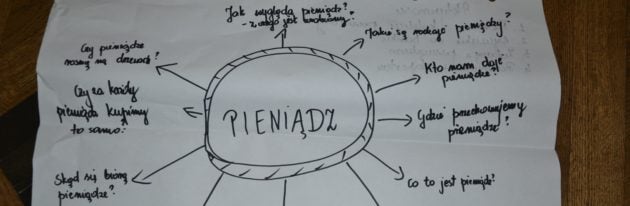 Jak wygląda pieniądz?
- z czego jest zrobiony?
Jakie są rodzaje pieniędzy?
Czy pieniądze
rosną na drzewach?
Kto nam daje
pieniądze?
Czy za każdy
pieniądz kupimy
to samo?
PIENIĄDZ
Gdzie przechowujemy
pieniądze?
Skąd się biorą
pieniądze?
Co to jest pieniądz?